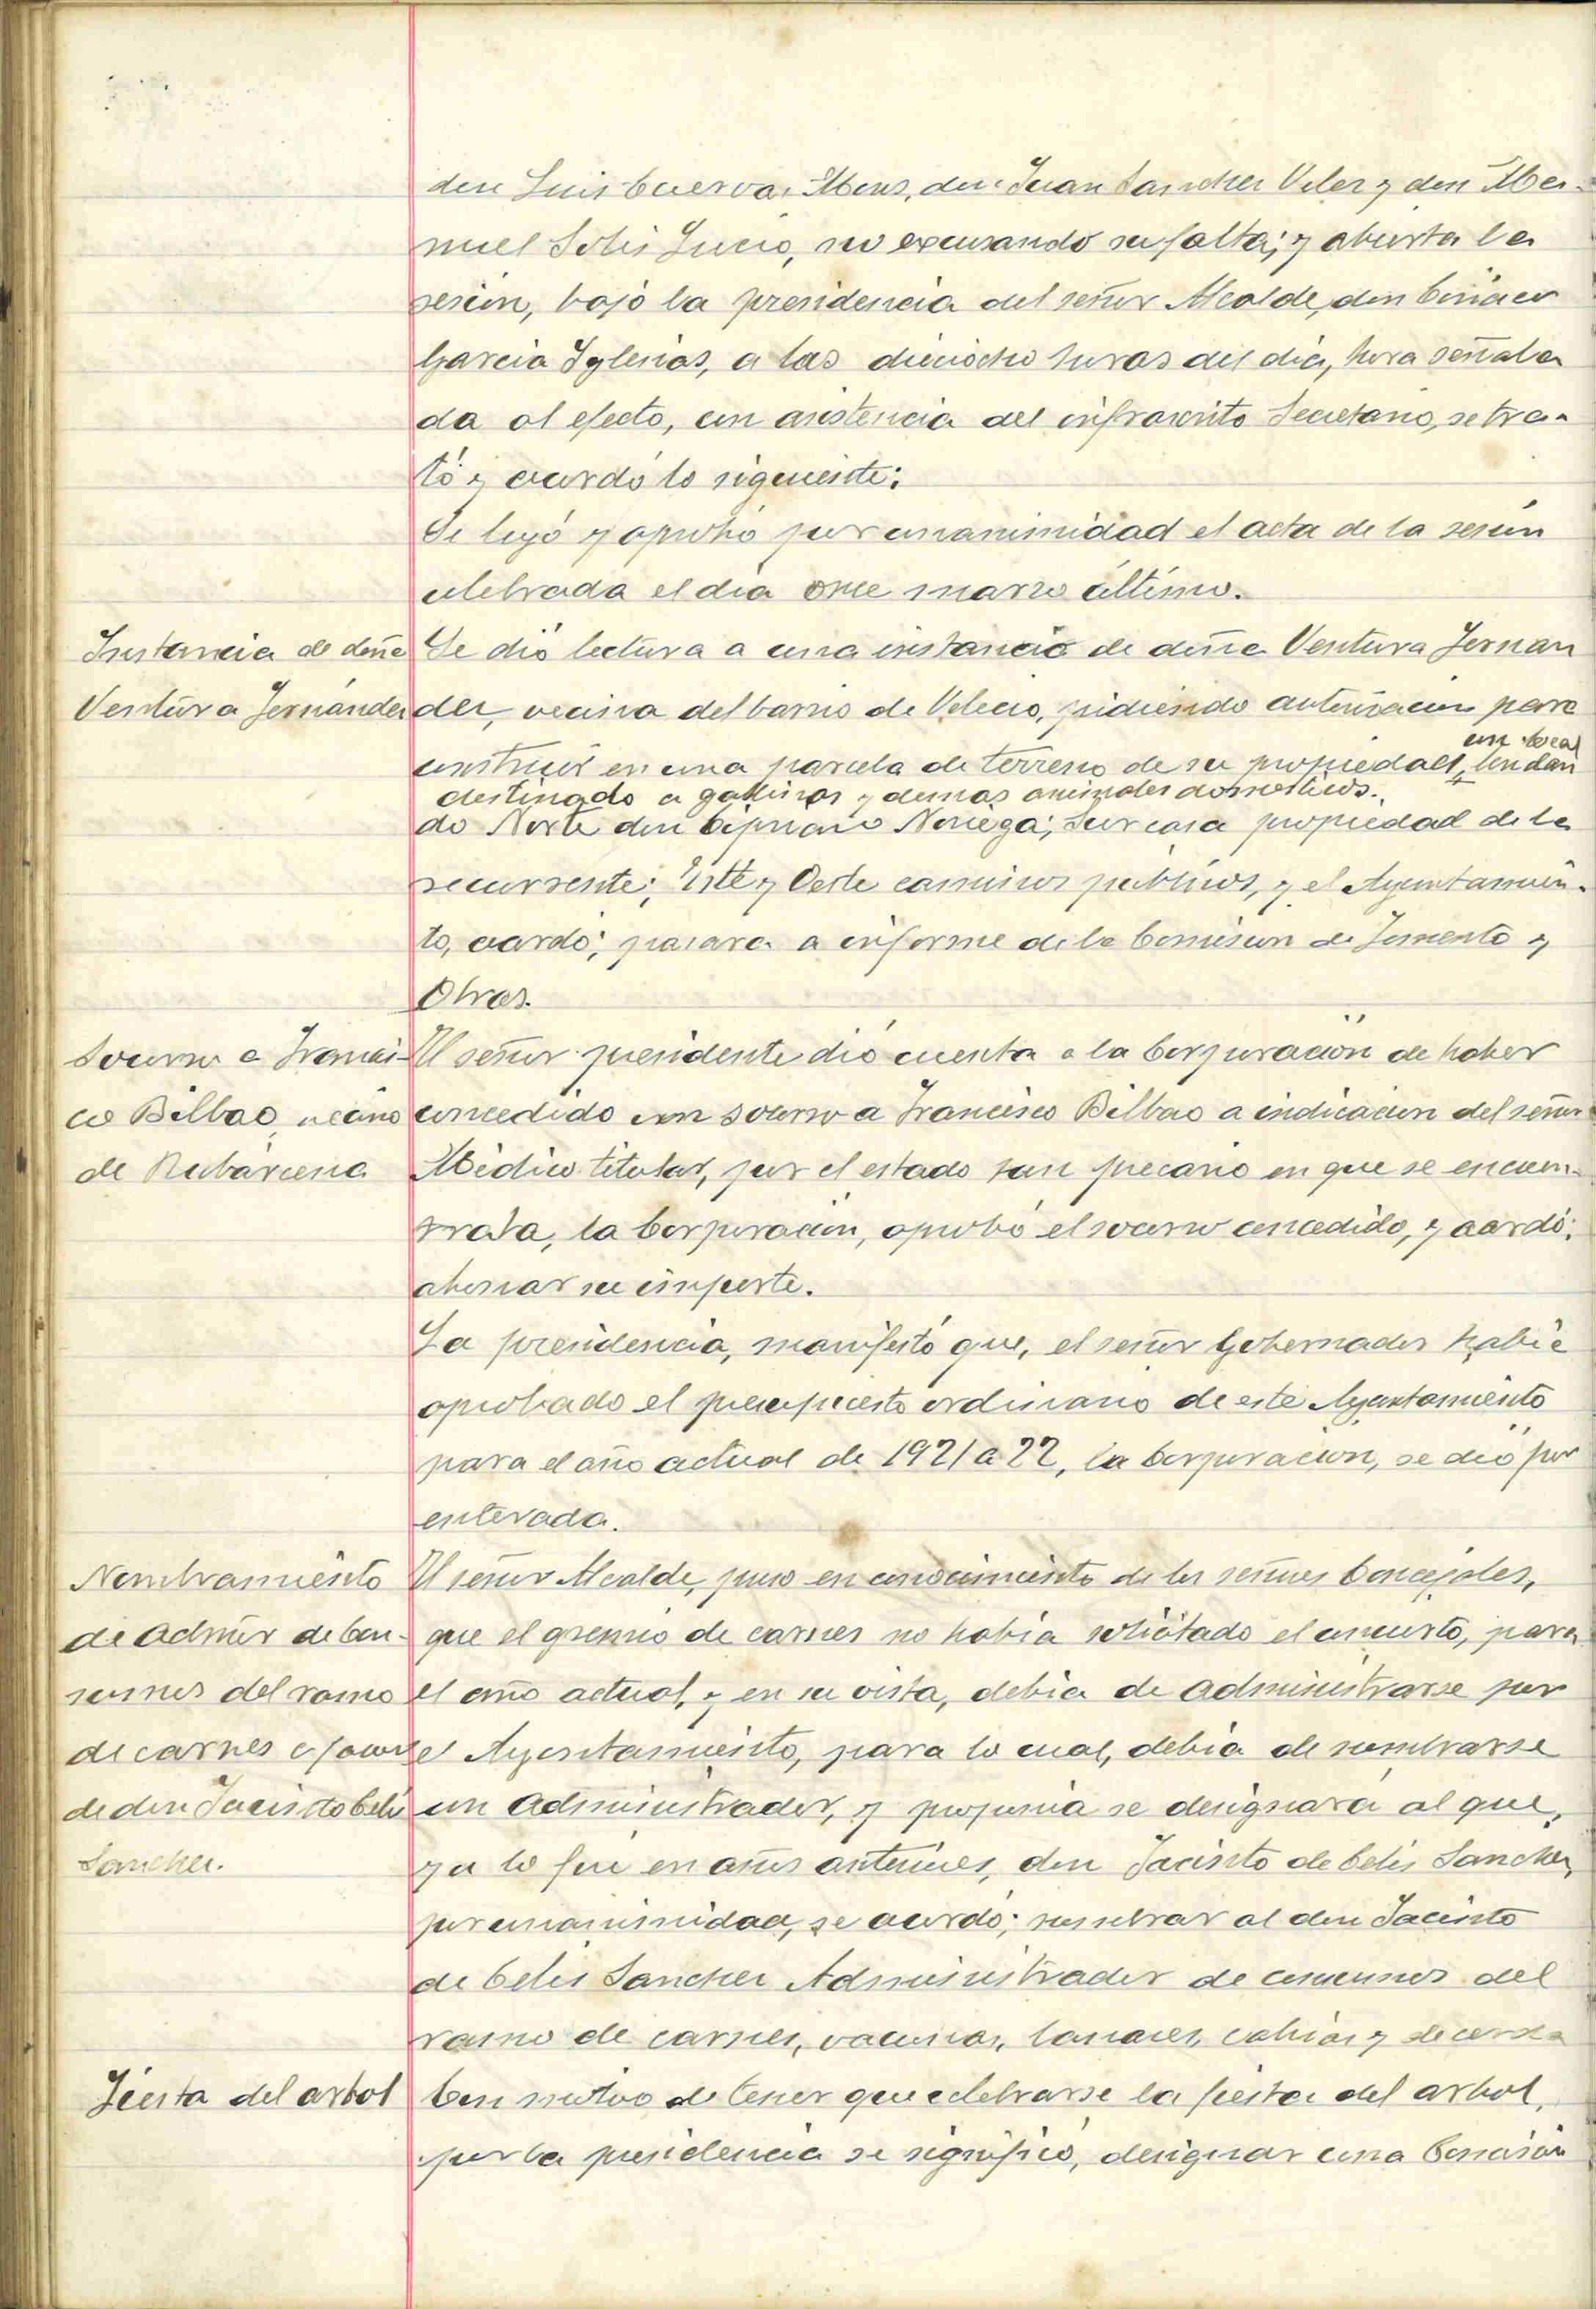 don Luis Cuerva Mons, don Juan Sanchez Velez y don Ma-
nuel Solis Lucio, no excusando su falta; y abierta la
sesion, bajo la presidencia del señor Alcalde, don Ciriaco
Garcia Iglesias, a las dieciocho horas del dia, hora señala
da al efecto, con asistencia del infrascrito Secretario, se tra-
tó y acordó lo siguiente:
Se leyó y aprobó por unanimidad el acta de la sesion
celebrada el dia once marzo último.
Instancia de doña
Ventura Fernández
Se dió lectura a una instancia de doña Ventura Fernan
dez, vecina del barrio de Velecio, pidiendo autorizacion para
un local
construir en una parcela de terreno de su propiedad, lindan
destinado a gallinas y demas animales domesticos.
do Norte don Cipriano Noriega; Sur casa propiedad de la
recurrente; Este y Oeste caminos publicos, y el Ayuntamien-
to, acordó; pasara a informe de la Comision de Fomento y
Obras.
Socorro a Francis-
co Bilbao, vecino
de Rubárcena
El señor presidente dió cuenta a la Corporación de haber
concedido un socorro a Francisco Bilbao a indicacion del señor
Médico titular, por el estado tan precario en que se encuen-
traba, la Corporacion, aprobó el socorro concedido, y acordó;
abonar su importe.
La presidencia, manifestó que, el señor Gobernador habia
aprobado el presupuesto ordinario de este Ayuntamiento
para el año actual de 1921 a 22, la Corporacion, se dió por
enterada.
Nombramiento
de Admor de Con-
sumos del ramo
de carnes a favor
de don Jacinto Celis
Sanchez.
El señor Alcalde, puso en conocimiento de los señores Concejales,
que el gremio de carnes no habia solicitado el concierto, para
el año actual, y en su vista, debia de administrarse por
el Ayuntamiento, para lo cual, debia de nombrarse
un Administrador, y proponia se designara al que,
ya lo fué en años anteriores, don Jacinto de Celis Sanchez,
por unanimidad, se acordó; nombrar al don Jacinto
de Celis Sanchez Administrador de consumos del
ramo de carnes, vacunas, lanares, cabrias y de cerda
Fiesta del arbol
Con motivo de tener que celebrarse la fiesta del arbol,
por la presidencia se significó, designar una Comision